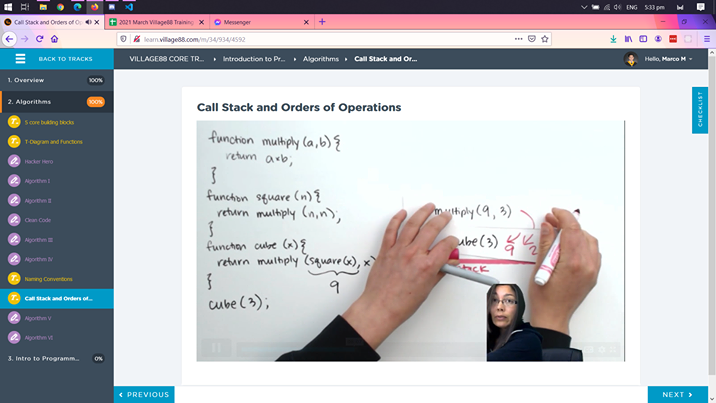 ENG 5:33 pm
Call Stack and Orders of Op
2021 March Village88 Training
Messenger
learn.village88.com/m/34/934/4592
BACK TO TRACKS
VILLAGE88 CORE TR... Introduction to Pr... Algorithms Call Stack and Or...
Hello, Marco M
1. Overview 100%
2. Algorithms 100%
5 core building blocks
T-Diagram and Functions
Hacker Hero
Algorithm I
Algorithm II
Clean Code
Algorithm III
Algorithm IV
Naming Conventions
Call Stack and Orders of...
Algorithm V
Algorithm VI
3. Intro to Programm... 0%
CHECKLIST
Call Stack and Orders of Operations
function multiply (a,b) {
return a*b;
}
function square (n) {
return multiply (n,n);
}
function cube (x) {
return multiply (square(x), x
}
9
cube (3);
multiply (9, 3)
cube (3) 9 2
PREVIOUS
NEXT